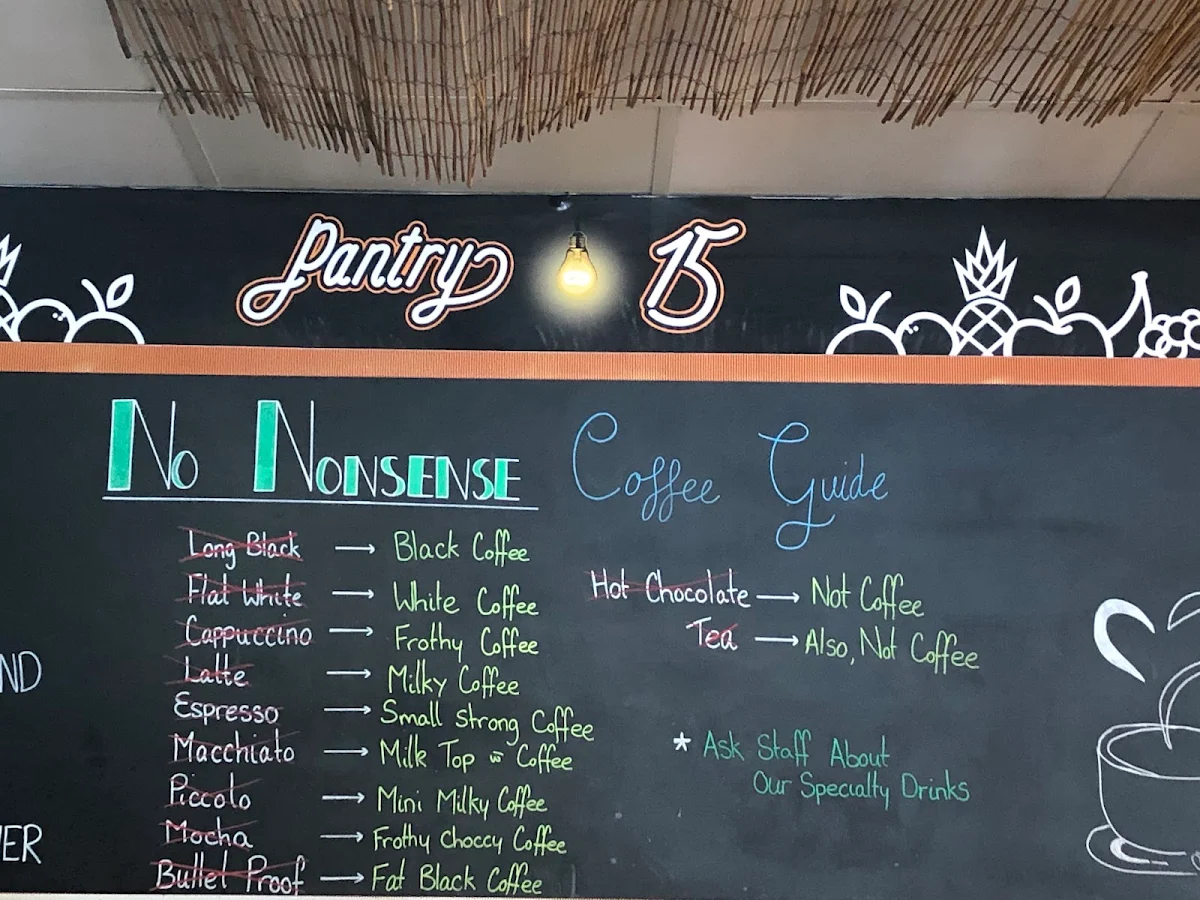 Pantry 15
No Nonsense Coffee Guide
Long Black → Black Coffee
Flat White → White Coffee
Cappuccino → Frothy Coffee
Latte → Milky Coffee
Espresso → Small Strong Coffee
Macchiato → Milk Top w Coffee
Piccolo → Mini Milky Coffee
Mocha → Frothy Choccy Coffee
Bullet Proof → Fat Black Coffee
Hot Chocolate → Not Coffee
Tea → Also, Not Coffee
* Ask Staff About
Our Specialty Drinks
ND
ER